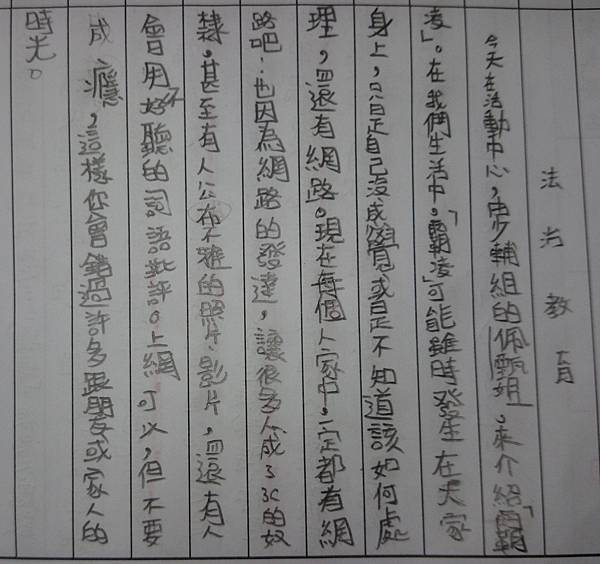 法治教育
今天在活動中心,由少輔組的佩甄姐,來介紹「霸
凌」。在我們生活中。「霸凌」可能雖時發生在大家
身上,只是自己沒感覺或是不知道該如何處
理,還有網路。現在每個人家中,一定都有網
路吧!也因為網路的發達,讓很多人成了3C的奴
隸,甚至有人公布不雅的照片、影片,還有人
會用不好聽的詞語批評。上網可以,但不要
成癮,這樣你會錯過許多跟朋友或家人的
時光。